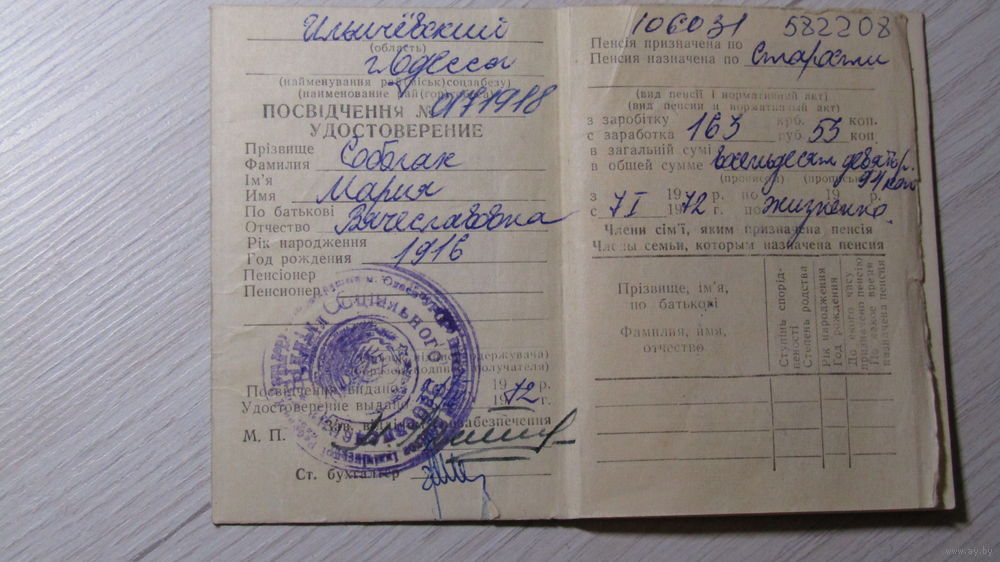 Ильичёвский
(область)
г. Одесса
(найменування рай(міськ)соцзабезу)
(наименование рай(гор)собеса)
ПОСВІДЧЕННЯ № 0171918
УДОСТОВЕРЕНИЕ
Прізвище
Фамилия Собогак
Ім'я
Имя Мария
По батькові
Отчество Вячеславовна
Рік народження
Год рождения 1916
Пенсіонер
Пенсионер
Посвідчення видано 19 р.
Удостоверение выдано 1972 г.
Зав.
М. П.
Ст. бухгалтер
106031 582208
Пенсія призначена по
Пенсия назначена по старости
(вид пенсії і нормативний акт)
(вид пенсии и нормативный акт)
з заробітку крб. коп.
с заработка 163 руб 53 коп
в загальній сумі
в общей сумме восемьдесят девять р.
(прописом) 94 коп
з 19 р. по 19 р.
с 7 I 1972 г. по жизненно
Члени сім'ї, яким призначена пенсія
Члены семьи, которым назначена пенсия
Прізвище, ім'я,
по батькові
Фамилия, имя,
отчество
Ступінь спорід-
неності
Степень родства
Рік народження
Год рождения
До якого часу
призначено пенсію
По какое время
назначена пенсия
www.ay.by